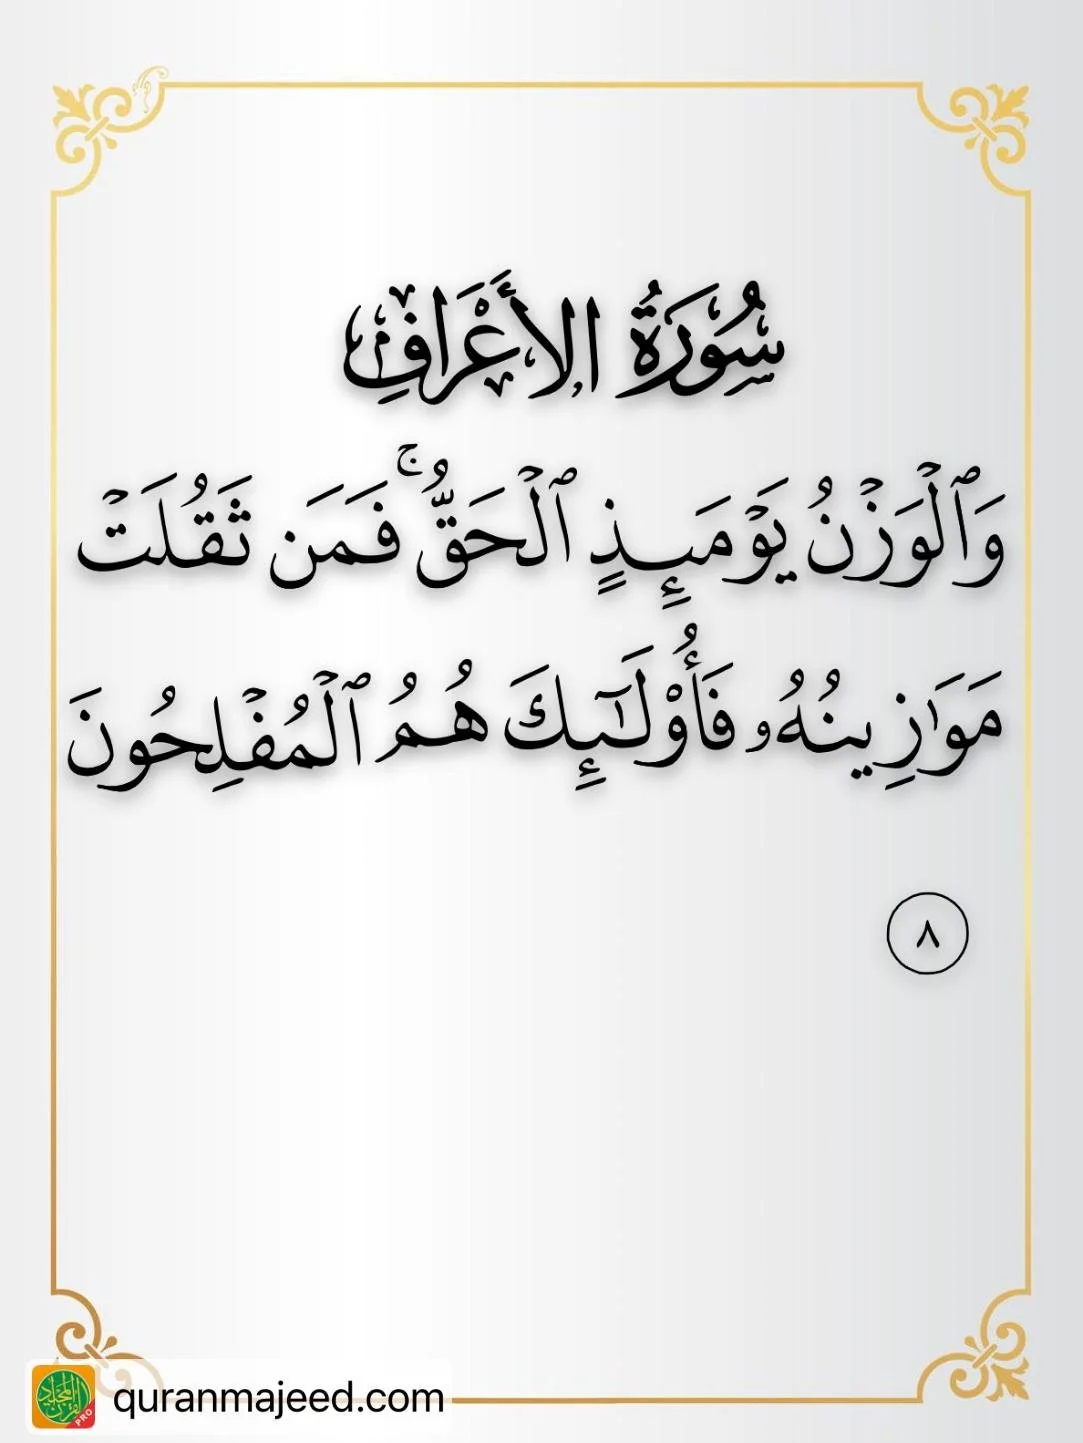 سُورَةُ الأَعْرَافِ
وَٱلْوَزْنُ يَوْمَئِذٍ ٱلْحَقُّ ۚ فَمَن ثَقُلَتْ
مَوَٰزِينُهُۥ فَأُو۟لَـٰٓئِكَ هُمُ ٱلْمُفْلِحُونَ
٨
quranmajeed.com
PRO